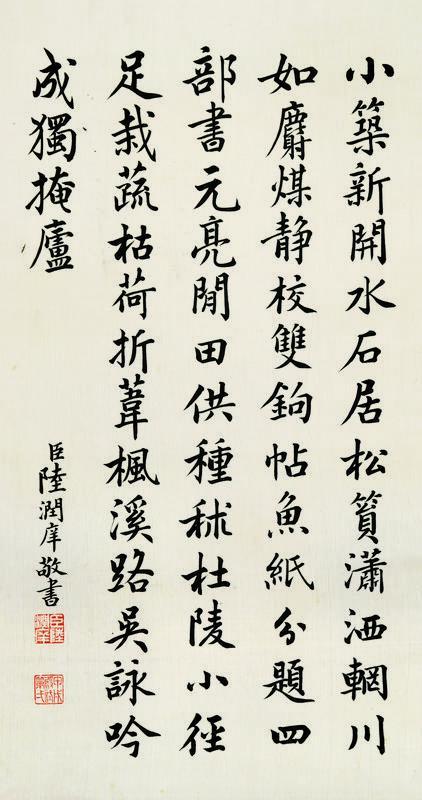 小築新開水石居松篔瀟洒輞川
如麝煤静校雙鉤帖魚紙分題四
部書元亮閒田供種秫杜陵小徑
足栽蔬枯荷折葦楓溪路吳詠吟
成獨掩廬
臣陸潤庠敬書
臣陸潤庠